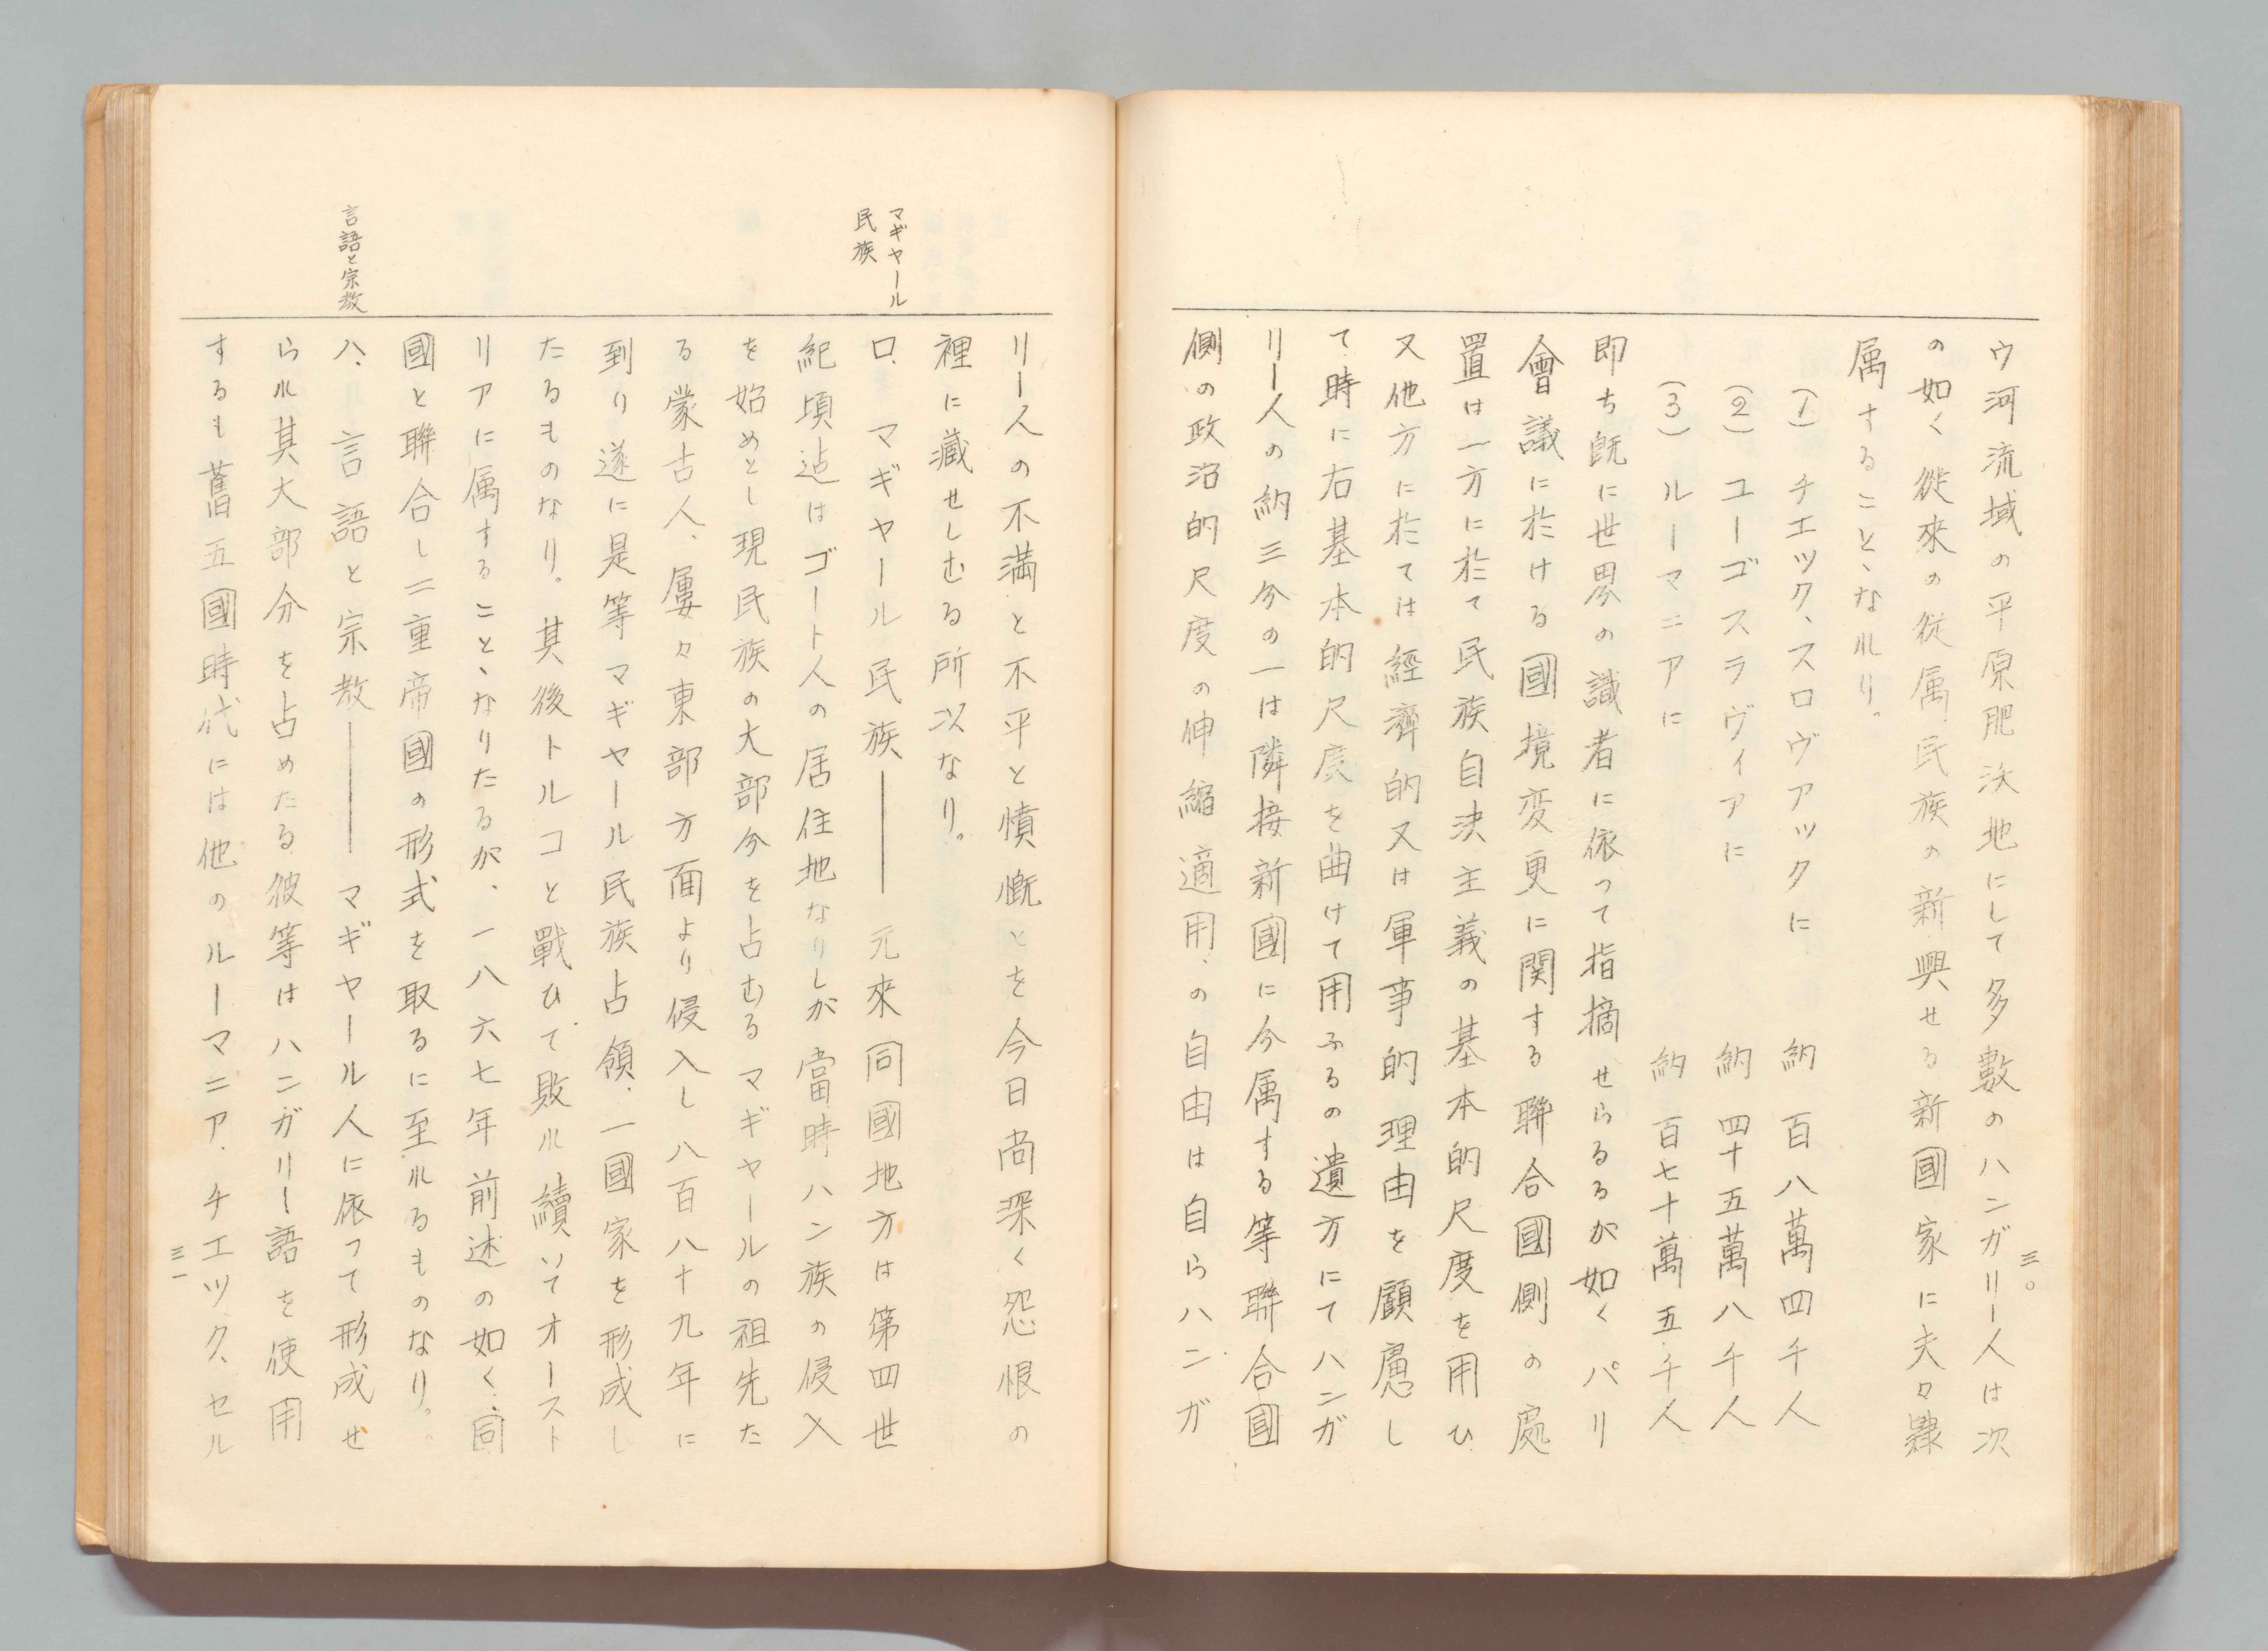 三〇
ウ河流域の平原肥沃地にして多數のハンガリー人は次
の如く從來の從属民族の新興せる新國家に夫々隷
属することゝなれり。
(1) チエツク、スロヴアツクに 納 百八萬四千人
(2) ユーゴスラヴィアに 納 四十五萬八千人
(3) ルーマニアに 納 百七十萬五千人
即ち既に世界の識者に依つて指摘せらるるが如くパリ
會議に於ける國境変更に関する聯合國側の處
置は一方に於て民族自決主義の基本的尺度を用ひ
又他方に於ては經濟的又は軍事的理由を顧慮し
て時に右基本的尺度を曲けて用ふるの遺方にてハンガ
リー人の納三分の一は隣接新國に今属する等聯合國
側の政治的尺度の伸縮適用の自由は自らハンガ
リー人の不満と不平と憤慨とを今日尚深く怨恨の
裡に藏せしむる所以なり。
マギャール
民族
ロ、マギャール民族――元來同國地方は第四世
紀頃迠はゴート人の居住地なりしが當時ハン族の侵入
を始めとし現民族の大部分を占むるマギャールの祖先た
る蒙古人、屢々東部方面より侵入し八百八十九年に
到り遂に是等マギャール民族占領、一國家を形成し
たるものなり。其後トルコと戰ひて敗れ續いてオースト
リアに属することゝなりたるが、一八六七年前述の如く同
國と聯合し二重帝國の形式を取るに至れるものなり。
言語と宗教
ハ、言語と宗教――マギャール人に依つて形成せ
られ其大部分を占めたる彼等はハンガリー語を使用
するも舊五國時代には他のルーマニア、チエツク、セル
三一